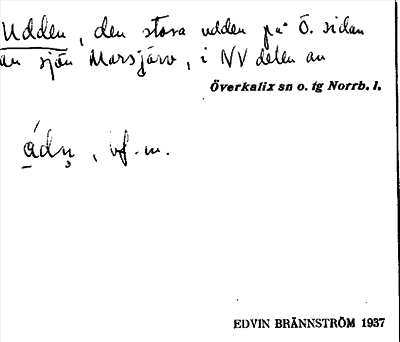 Udden, den stora udden på Ö. sidan
av sjön Marsjärv, i NV delen av
Överkalix sn o. tg Norrb. l.
ádn̥, vf. m.
EDVIN BRÄNNSTRÖM 1937